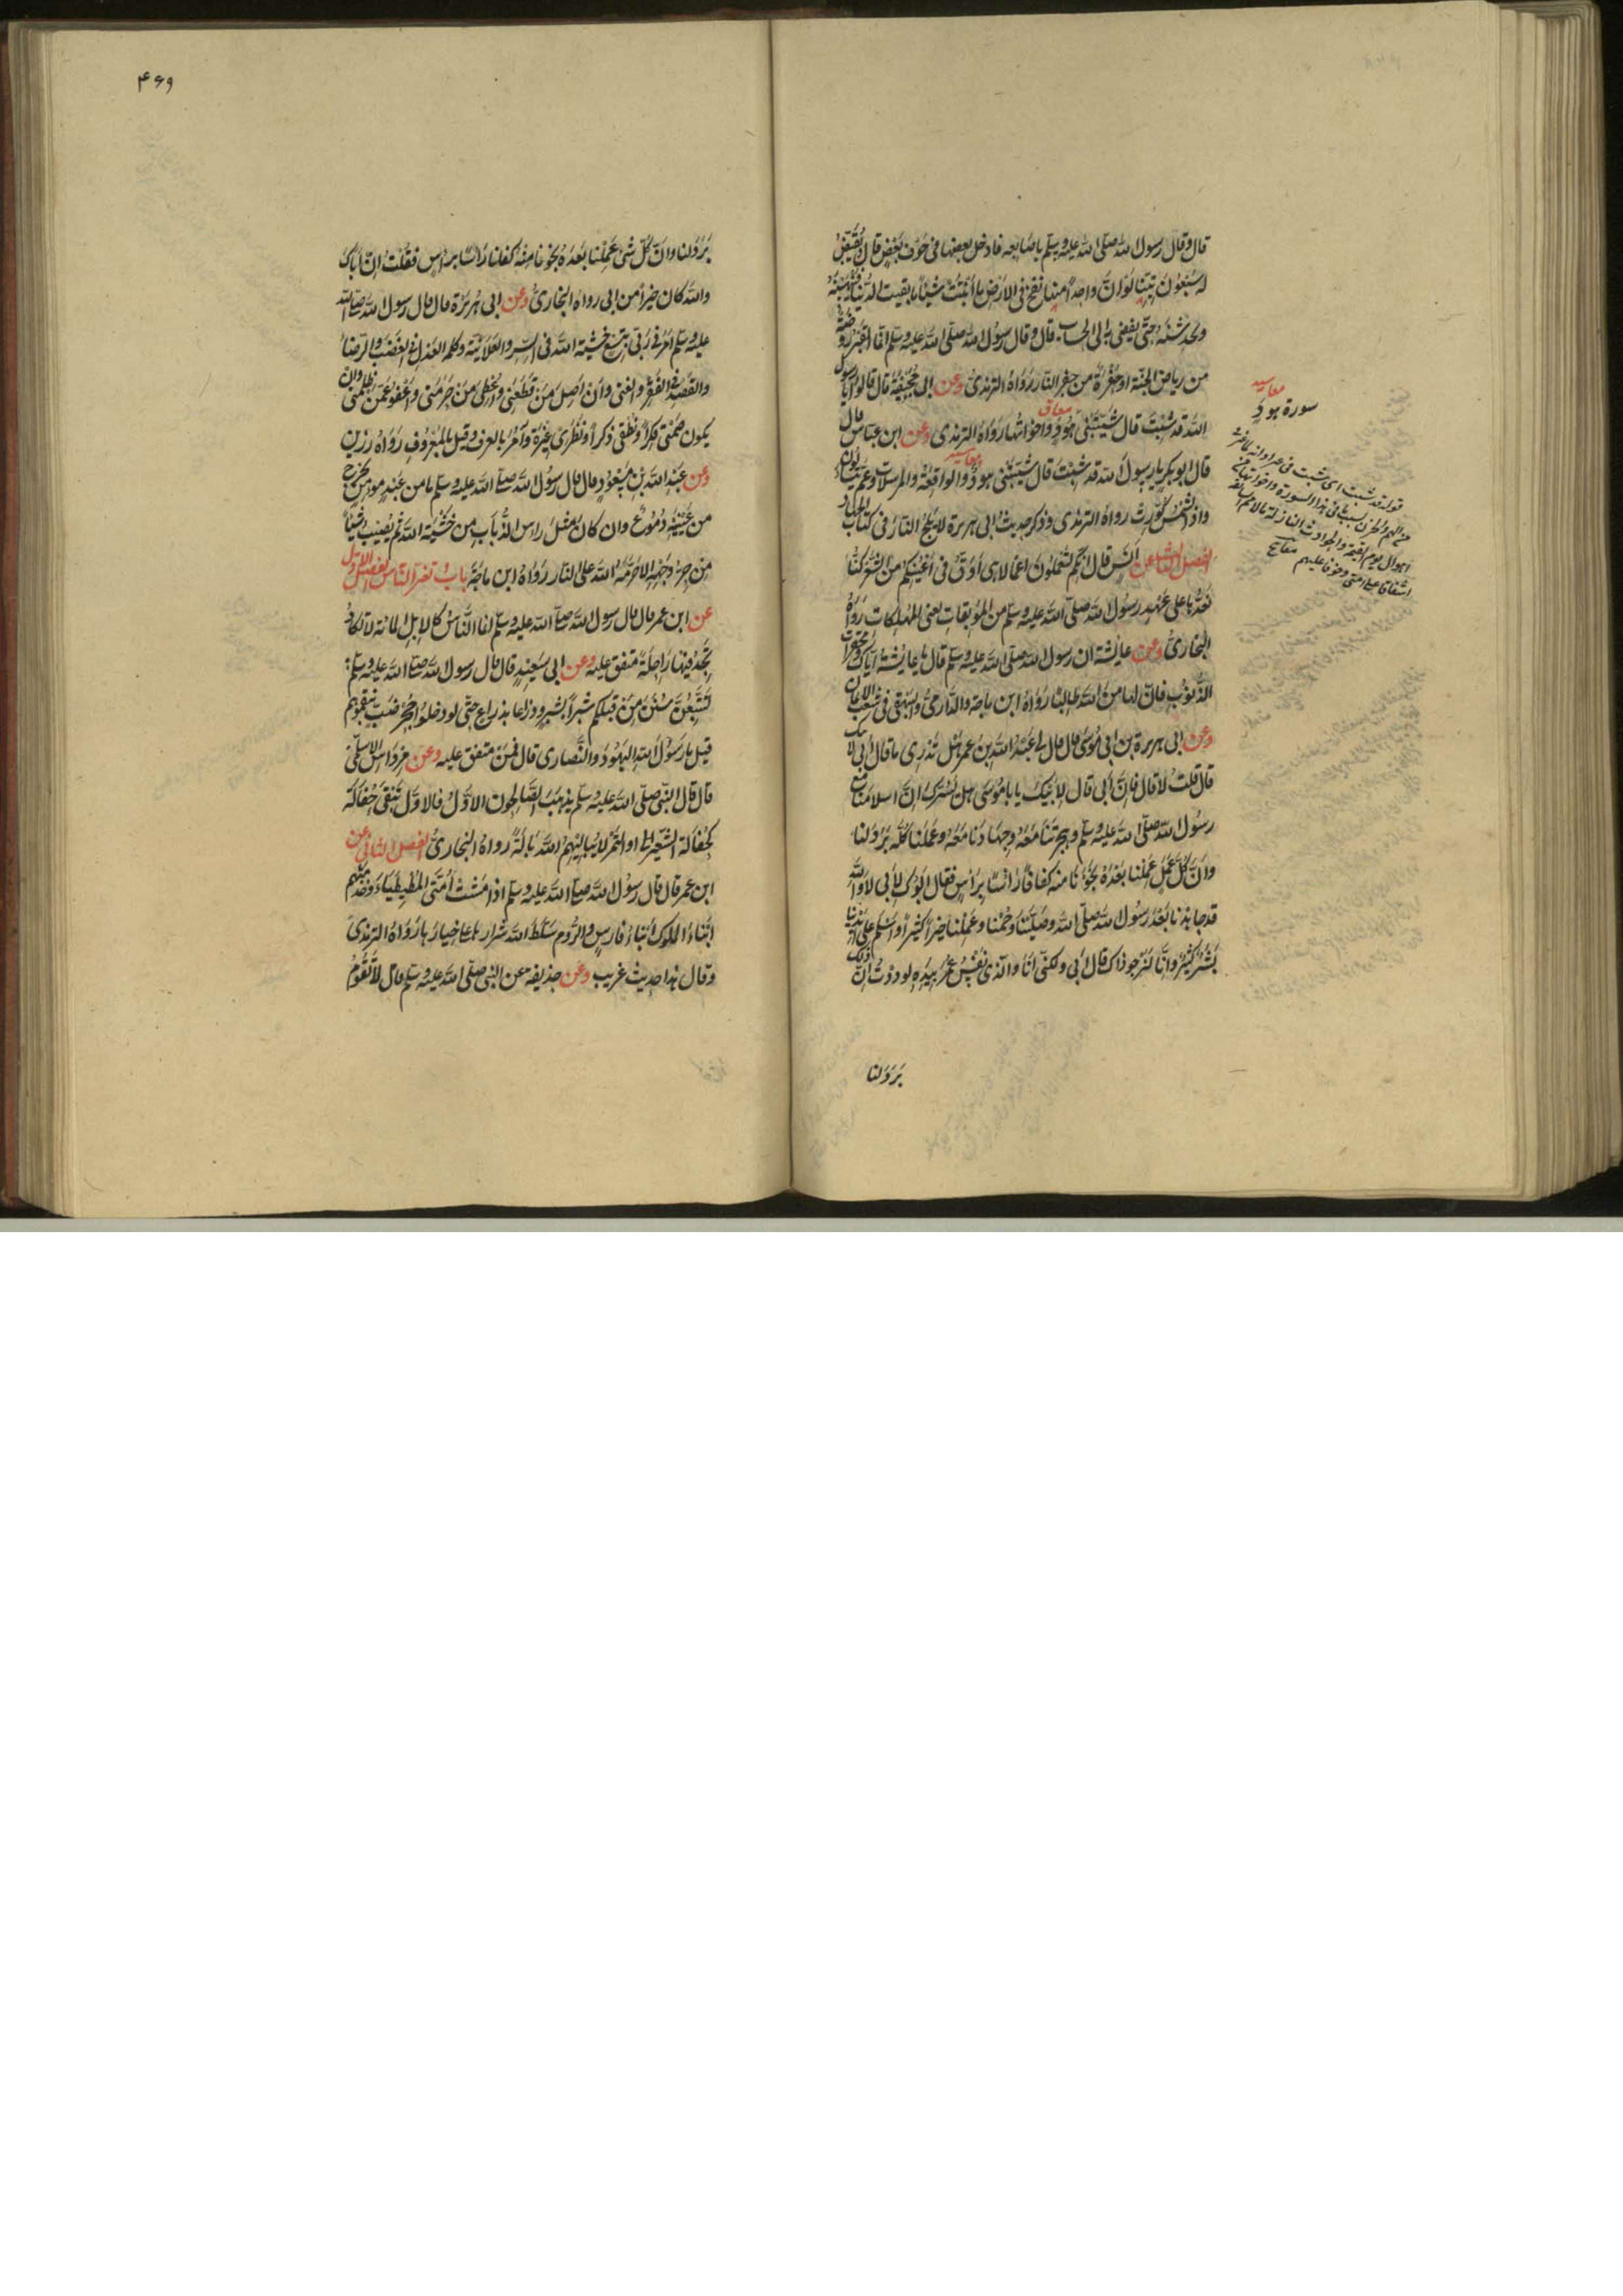 قال وقال رسول الله صلى الله عليه وسلم باصابعه فادخل بعضها في جوف بعض قال يقيض
له سبعون تنينا لو ان واحدا منها نفخ في الارض ما انبتت شيئا ما بقيت الدنيا فينهسنه
ويخدشنه حتى يفضى به الى الحساب قال وقال رسول الله صلى الله عليه وسلم انما القبر روضة
من رياض الجنة او حفرة من حفر النار رواه الترمذى وعن ابى جحيفة قال قالوا يا رسول
الله قد شبت قال شيبتنى هود واخواتها رواه الترمذى وعن ابن عباس قال
قال ابو بكر يا رسول الله قد شبت قال شيبتنى هود والواقعة والمرسلات وعم يتساءلون
واذا الشمس كورت رواه الترمذى وذكر حديث ابى هريرة لا يلج النار فى كتاب الجهاد
الفصل الثالث عن انس قال انكم لتعملون اعمالا هى ادق فى اعينكم من الشعر كنا
نعدها على عهد رسول الله صلى الله عليه وسلم من الموبقات يعنى المهلكات رواه
البخارى وعن عايشة ان رسول الله صلى الله عليه وسلم قال يا عايشة اياك ومحقرات
الذنوب فان لها من الله طالبا رواه ابن ماجه والدارمى والبيهقى فى شعب الايمان
وعن ابى بردة بن ابى موسى قال قال لى عبد الله بن عمر هل تدرى ما قال ابى لابيك
قال قلت لا قال فان ابى قال لابيك يا با موسى هل يسرك ان اسلامنا مع
رسول الله صلى الله عليه وسلم وهجرتنا معه وجهادنا معه وعملنا كله برد لنا
وان كل عمل عملنا بعده نجونا منه كفافا راسا براس فقال ابوك لابى لا والله
قد جاهدنا بعد رسول الله صلى الله وصلينا وصمنا وعملنا خيرا كثيرا واسلم على ايدينا
بشر كثير وانا لنرجو ذاك قال ابى ولكنى انا والذى نفس عمر بيده لوددت ان ذلك
برد لنا
سورة هود
قوله قد شبت اى شبت فى غير اوانه
من الهم والحزن بسبب ما فى هذه السورة واخواتها من
اهوال يوم القيمة والحوادث النازلة بالامم السالفة
اشفاقا على امتى وخوفا عليهم مفاتيح
۴۶۹
برد لنا وان كل شئ عملنا بعده نجونا منه كفافا راسا براس فقلت ان اباك
والله كان خيرا من ابى رواه البخارى وعن ابى هريرة قال قال رسول الله صلى الله
عليه وسلم امرنى ربى بتسع خشية الله فى السر والعلانية وكلمة العدل فى الغضب والرضا
والقصد فى الفقر والغنى وان اصل من قطعنى واعطى من حرمنى واعفو عمن ظلمنى وان
يكون صمتى فكرا ونطقى ذكرا ونظرى عبرة وآمر بالعرف وقيل بالمعروف رواه رزين
وعن عبد الله بن مسعود قال قال رسول الله صلى الله عليه وسلم ما من عبد مومن يخرج
من عينيه دموع وان كان مثل راس الذباب من خشية الله ثم يصيب شيئا
من حر وجهه الا حرمه الله على النار رواه ابن ماجة باب تغير الناس الفصل الاول
عن ابن عمر قال قال رسول الله صلى الله عليه وسلم انما الناس كالابل المائة لا تكاد
تجد فيها راحلة متفق عليه وعن ابى سعيد قال قال رسول الله صلى الله عليه وسلم
لتتبعن سنن من قبلكم شبرا بشبر وذراعا بذراع حتى لو دخلوا جحر ضب تبعتموهم
قيل يا رسول الله اليهود والنصارى قال فمن متفق عليه وعن مرداس الاسلمى
قال قال النبى صلى الله عليه وسلم يذهب الصالحون الاول فالاول وتبقى حفالة
كحفالة الشعير او التمر لا يباليهم الله بالة رواه البخارى الفصل الثانى عن
ابن عمر قال قال رسول الله صلى الله عليه وسلم اذا مشت امتى المطيطياء وخدمتهم
ابناء الملوك ابناء فارس والروم سلط الله شرارها على خيارها رواه الترمذى
وقال هذا حديث غريب وعن حذيفة عن النبى صلى الله عليه وسلم قال لا تقوم